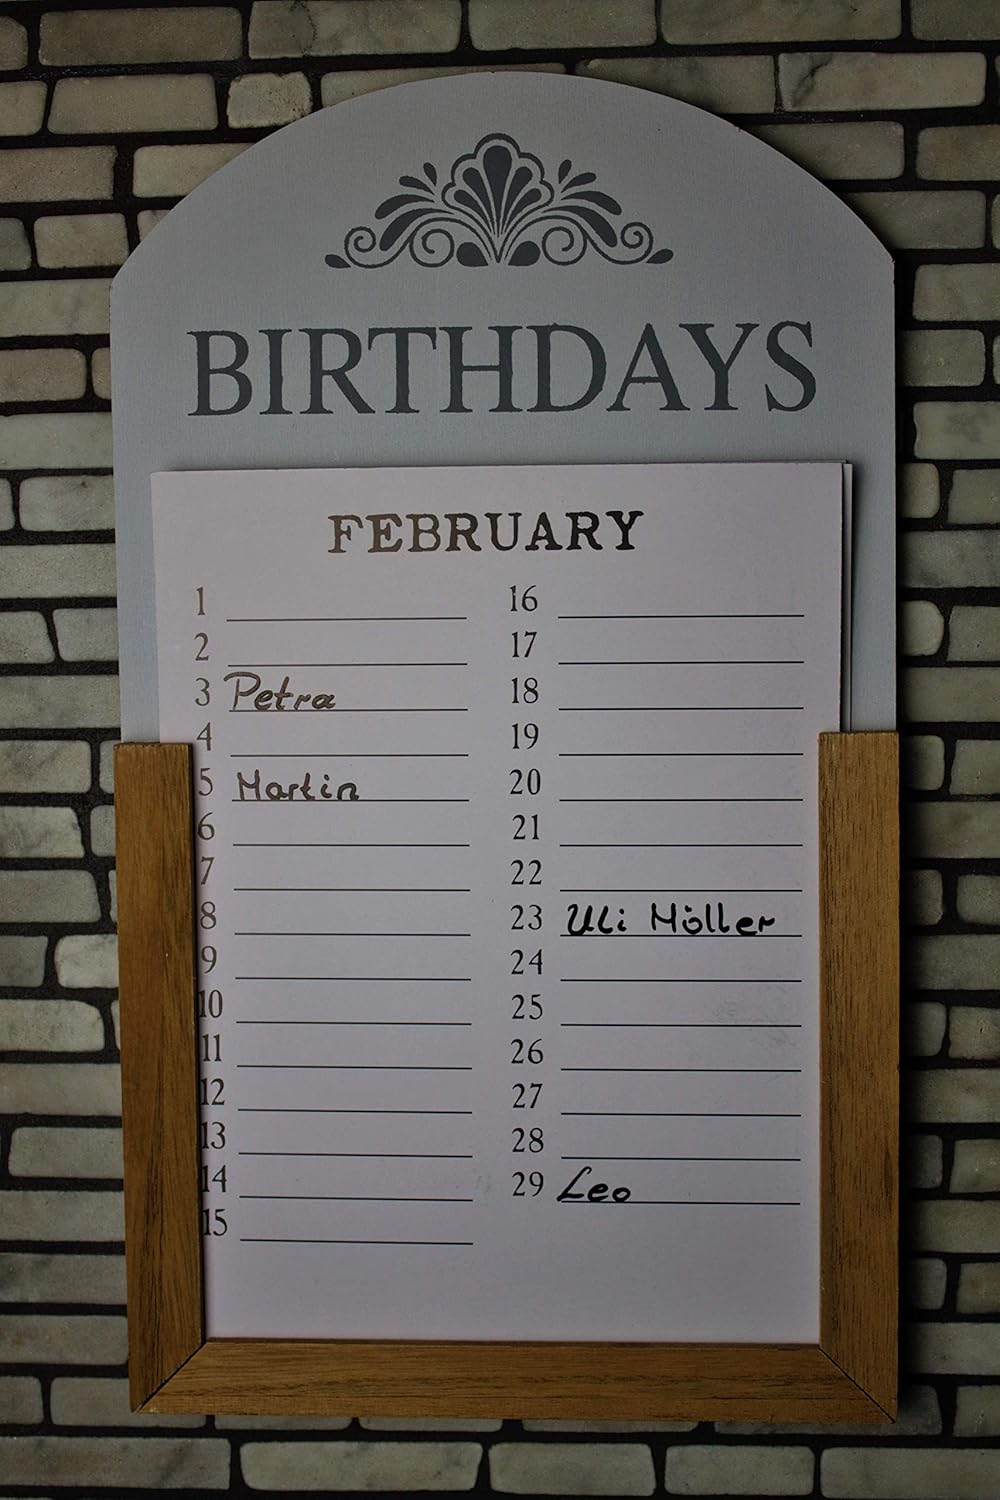 BIRTHDAYS
FEBRUARY
1
2
3 Petra
4
5 Martin
6
7
8
9
10
11
12
13
14
15
16
17
18
19
20
21
22
23 Uli Möller
24
25
26
27
28
29 Leo